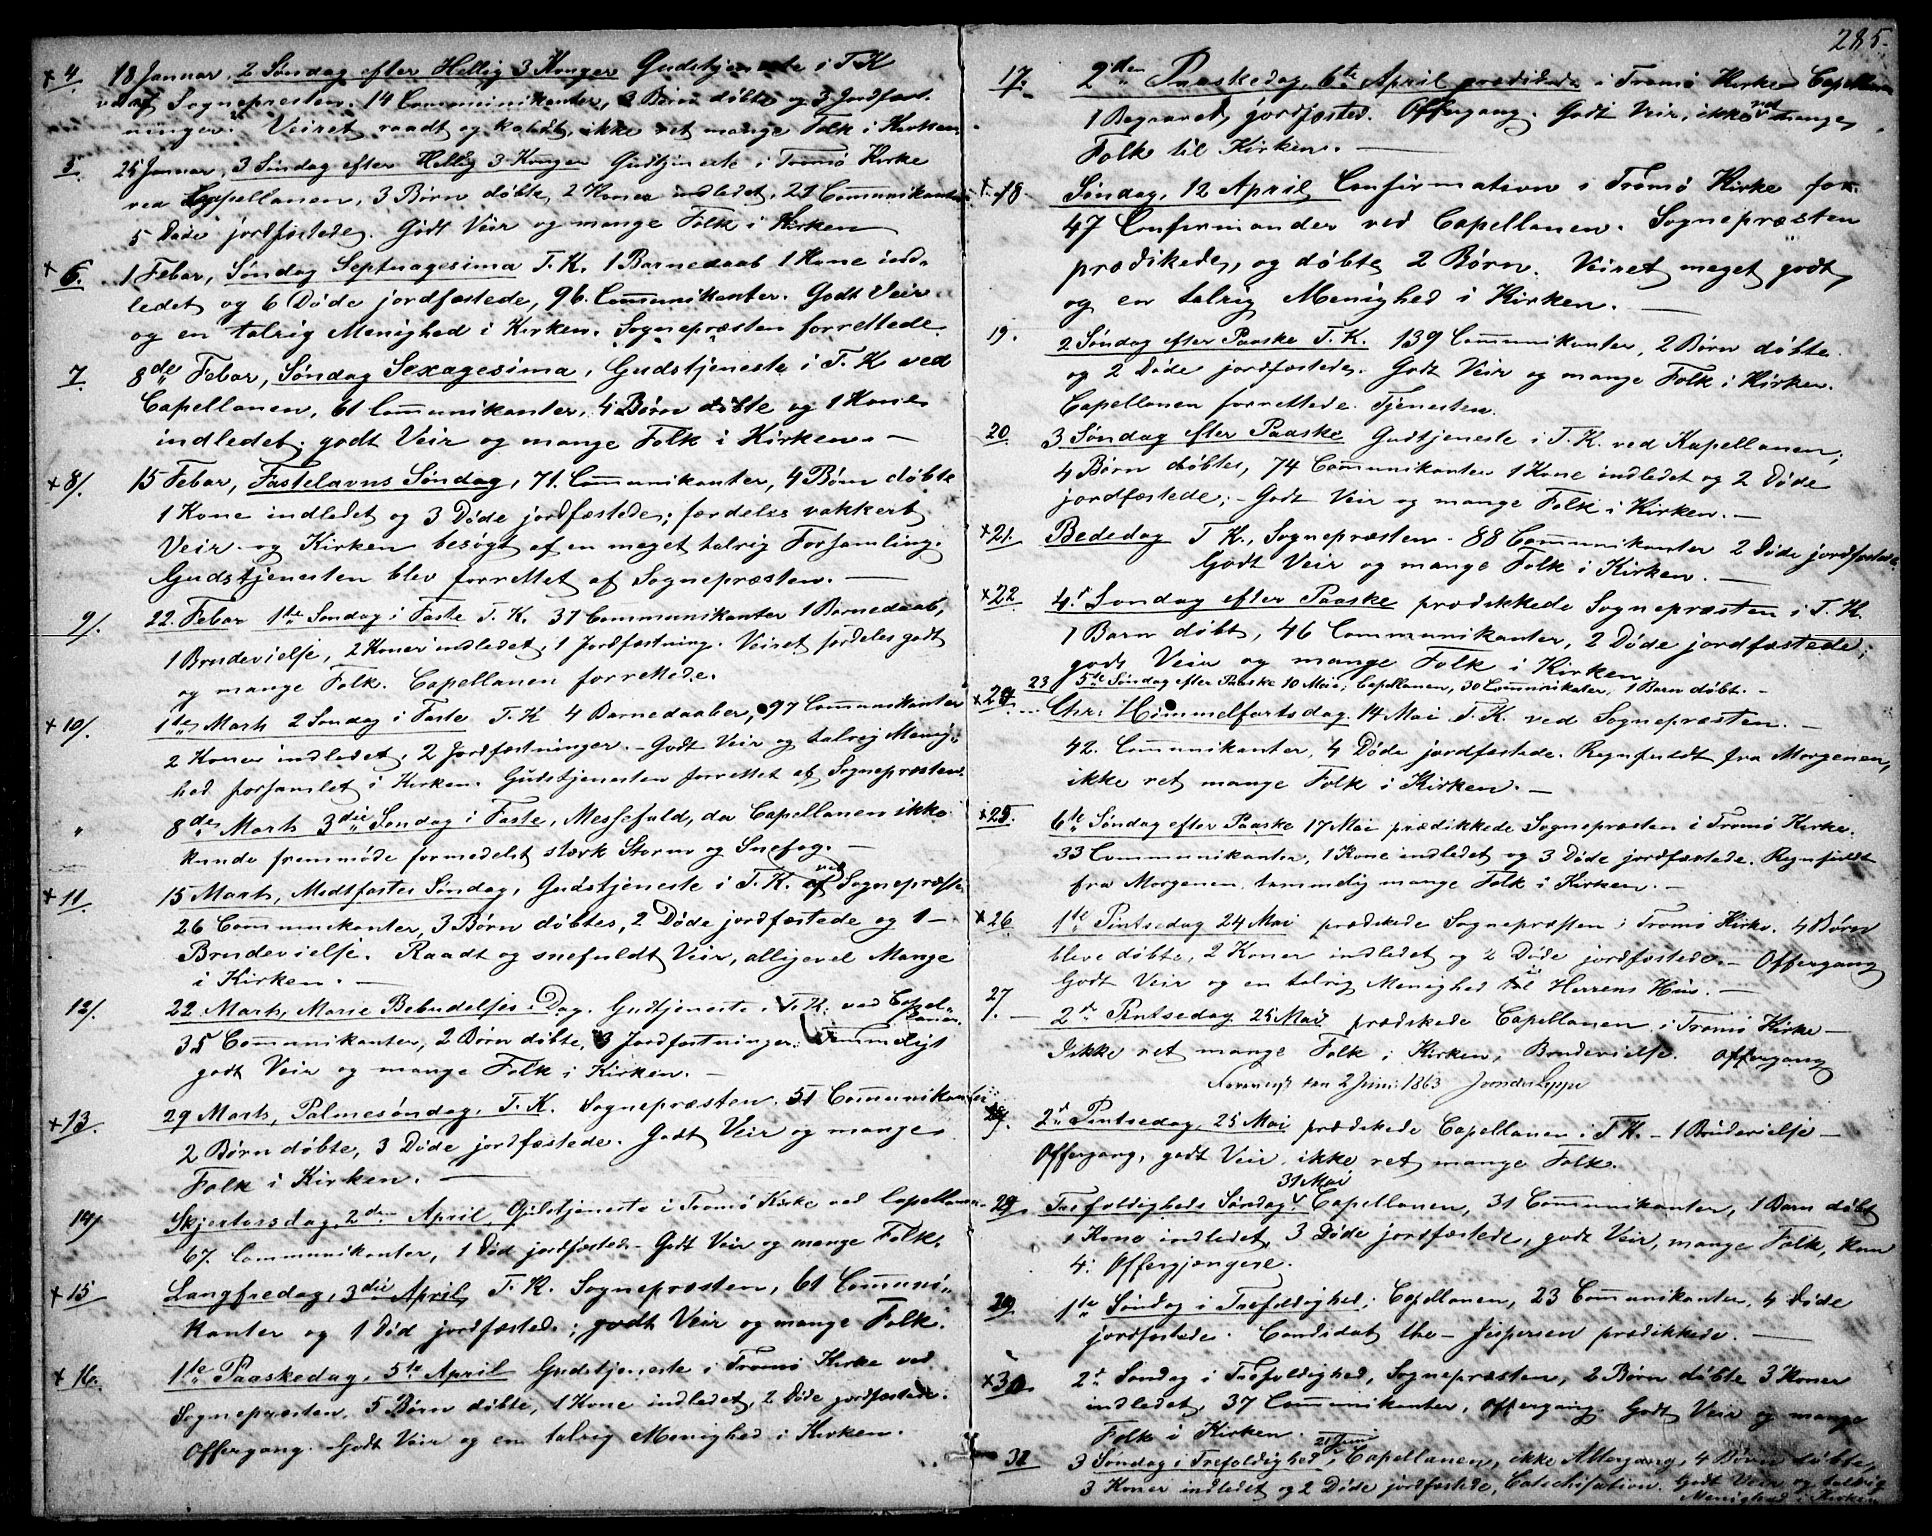 x 4. 18 Januar, 2 Søndag efter Hellig 3 Konger Gudstjeneste i T. K.
ved Sognepræsten. 14 Communikanter, 3 Børn døbte og 3 Jordfæst-
ninger. Veiret raadt og koldt, ikke ret mange Folk i Kirken.
5. 25 Januar, 3 Søndag efter Hellig 3 Konger Gudtjeneste i Tromø Kirke
ved Cappellanen, 3 Børn døbte, 2 Koner indledet, 21 Communikanter
5 Døde jordfæstede. Godt Veir og mange Folk i Kirken
x 6. 1 Febar, Søndag Septuagesima T. K. 1 Barnedaab 1 Kone ind-
ledet og 6 Døde jordfæstede, 96. Communikanter. Godt Veir
og en talrig Menighed i Kirken. Sognepræsten forrettede.
7. 8de Febar, Søndag Sexagesima, Gudstjeneste i T. K ved
Capellanen, 61 Communikanter, 4 Børn døbte og 1 Kone
indledet, godt Veir og mange Folk i Kirken. —
x 8/. 15 Febar, Fastelavns Søndag, 71. Communikanter, 4 Børn døbte
1 Kone indledet og 3 Døde jordfæstede; særdeles vakkert
Veir og Kirken besøgt af en meget talrig Forsamling.
Gudstjenesten blev forrettet af Sognepræsten. —
9/. 22. Febar 1ste Søndag i Faste T. K. 37 Communikanter 1 Barnedaab,
1 Brudevielse, 2 Koner indledet, 1 Jordfæstning. Veiret særdeles godt
og mange Folk. Capellanen forrettede.
x 10/. 1ste Marts 2 Søndag i Faste T. K 4 Barnedaaber, 97 Communikanter
2 Koner indledet, 2 Jordfæstninger. – Godt Veir og talrig Menig-
hed forsamlet i Kirken. Gudstjenesten forrettet af Sognepræsten.
" 8de Marts 3die Søndag i Faste, Messefald, da Capellanen ikke
kunde fremmøde formedelst stærk Storm og Snefog. —
x 11. 15 Marts, Midtfaste Søndag, Gudstjeneste i T. K. af ved Sognepræste.
26 Communikanter, 3 Børn døbtes, 2 Døde jordfæstede og 1 –
Brudevielse. Raadt og snefuldt Veir, alligevel Mange
i Kirken. —
12/. 22. Marts, Marie Bebudelses Dag. Gudtjeneste i T. K. ved Capel-
lanen.
35 Communikanter, 2 Børn døbte, 3 Jordfæstninger. Temmeligt
godt Veir og mange Folk i Kirken. —
x 13. 29 Marts, Palmesøndag, T. K. Sognepræsten. 51 Communikanter
2 Børn døbte, 3 Døde jordfæstede. Godt Veir og mange
Folk i Kirken. —
14/ Skjertorsdag, 2den April, Gudstjeneste i Tromø Kirke ved Capellanen.
67. Communikanter, 1 Død jordfæstede – Godt Veir og mange Folk.
x 15 Langfredag, 3die April, T. K. Sognepræsten, 61 Commni-
kanter og 1 Død jordfæsted.; godt Veir og mange Folk.
x 16. 1te Paaskedag, 5te April Gudstjeneste i Tromø Kirke ved
Sognepræsten, 5 Børn døbte, 1 Kone indledet, 2 Døde jordfæstede.
Offergang. Godt Veir og en talrig Menighed i Kirken.
285.
17. 2den Paaskedag, 6te April prædikede i Tromø Kirke Capellanen
1 Begravet, jordfæsted. Offergang. Godt Veir, ikke ret mange
Folk til Kirken. —
x. 18 Søndag, 12 April Confirmation i Tromø Kirke for
47 Confirmander ved Capellanen. Sognepræsten
prædikede, og døbte 2 Børn. Veiret meget godt,
og en talrig Menighed i Kirken. —
19. 2 Søndag efter Paaske T. K. 139 Communikanter, 2 Børn døbte.
og 2 Døde jordfæstede. Godt Veir og mange Folk i Kirken.
Capellanen forrettede Tjenesten.
20. 3 Søndag efter Paaske Gudtjeneste i T. K. ved Kapellanen,
4 Børn døbtes, 74 Communikanter 1 Kone indledet og 2 Døde
jordfæstede; – Godt Veir og mange Folk i Kirken. —
x 21. Bededag T K., Sognepræsten. 88 Communikanter 2 Døde jordfæstede
Godt Veir og mange Folk i Kirken. —
x 22 4de Søndag efter Paaske prædikkede Sognepræsten i T. K.
1 Barn døbt, 46 Communikanter, 2 Døde jordfæstede;
godt Veir og mange Folk i Kirken
23 5te Søndag efter Paaske 10 Mai, Capellanen, 30 Communikanter, 1 Barn døbt. –
x 24 Chr. Himmelfartsdag 14 Mai T. K. ved Sognepræsten. –
42. Communikanter, 4 Døde jordfæstede. Regnfuldt fra Morgenen,
ikke ret mange Folk i Kirken. —
x 25. 6te Søndag efter Paaske 17 Mai prædikkede Sognepræsten i Tromø Kirke.
33 Communikanter, 1 Kone indledet og 3 Døde jordfæstede. Regnfuldt
fra Morgenen, temmelig mange Folk i Kirken. —
x 26 1te Pintsedag 24 Mai prædikede Sognepræsten i Tromø Kirke. 4 Børn
bleve døbte, 2 Koner indledet og 2 Døde jordfæstede. – Offergang
Godt Veir og en talrig Menighed i Herrens Hus. —
27/. – 2den Pintsedag 25 Mai prædikede Capellanen i Tromø Kirke –
Ikke ret mange Folk i Kirken, Brudevielse. Offergang
den 2 Juni 1863
2d Pintsedag, 25 Mai prædikede Capellanen i T. K. – 1 Brudevielse –
Offergang, godt Veir, ikke ret mange Folk.
31 Mai
28. Trefoldigheds Søndag Capellanen, 31 Communikanter, 1 Barn døbt
1 Kone indledet, 3 Døde jordfæstede, godt Veir, mange Folk, kun
4. Offergjængere.
29. 1te Søndag i Trefoldighed, Capellanen, 23 Communikanter, 4 Døde
jordfæstede. Candidat the– Jespersen prædikkede. —
x 30 2d Søndag i Trefoldighed, Sognepræsten, 2 Børn døbte 3 Koner
indledet, 37 Communikanter, Offergang. Godt Veir og mange
Folk i Kirken.
21 Juni
31 3 Søndag i Trefoldighed, Capellanen, ikke Altergang, 4 Børn døbte,
3 Koner indledet og 2 Døde jordfæstede, Catechisation. Godt Veir og talrig
Menighed i Kirken